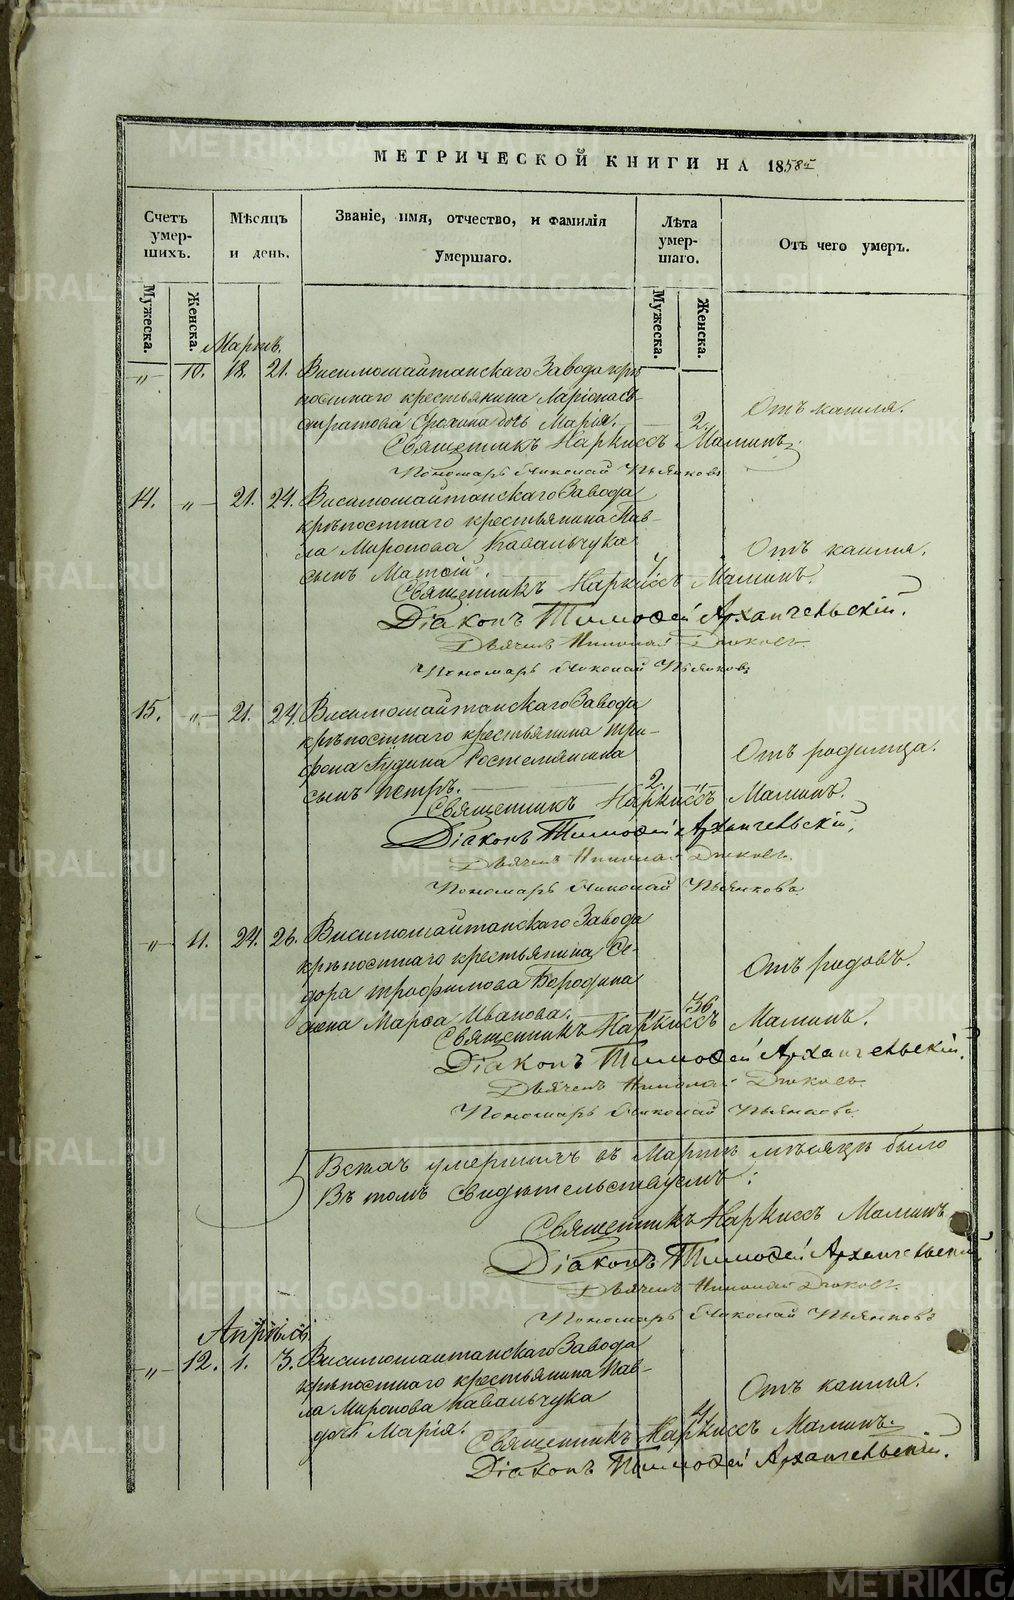 МЕТРИЧЕСКОЙ КНИГИ НА 1858й
Счетъ умер-шихъ.
Мѣсяцъ и день.
Званіе, имя, отчество, и фамилія Умершаго.
Лѣта умер-шаго.
Отъ чего умеръ.
Мужеска.
Женска.
Мужеска.
Женска.
Мартъ.
„ 10. 18. 21. Висимошайтанскаго Завода крѣ
постнаго крестьянина Ларіона
дочь Марія. 2. Отъ кашля.
Священникъ Наркиссъ Маминъ.
Пономарь Николай Пьянковъ
14. „ 21. 24. Висимошайтанскаго Завода
крѣпостнаго крестьянина Пав-
ла Миронова Кавальчука
сынъ Матѳій. 7 Отъ кашля.
Священникъ Наркиссъ Маминъ.
Діаконъ Тимоѳей Архангельскій.
Дьячекъ Николай
Пономарь Николай Пьянковъ
15. „ 21. 24. Висимошайтанскаго Завода
крѣпостнаго крестьянина Три-
фона
сынъ Петръ. 2. Отъ родимца.
Священникъ Наркиссъ Маминъ.
Діаконъ Тимоѳей Архангельскій.
Дьячекъ Николай
Пономарь Николай Пьянковъ
„ 11. 24. 26. Висимошайтанскаго Завода
крѣпостнаго крестьянина Си-
дора Трофимова Бородина
жена Марѳа Иванова. 36 Отъ родовъ.
Священникъ Наркиссъ Маминъ.
Діаконъ Тимоѳей Архангельскій.
Дьячекъ Николай
Пономарь Николай Пьянковъ
Всѣхъ умершихъ въ Мартѣ мѣсяцѣ было
Въ томъ свидѣтельствуемъ:
Священникъ Наркиссъ Маминъ
Діаконъ Тимоѳей Архангельскій
Дьячекъ Николай
Пономарь Николай Пьянковъ
Апрѣль
„ 12. 1. 3. Висимошайтанскаго Завода
крѣпостнаго крестьянина Пав-
ла Миронова Кавальчука
дочь Марія. 4 Отъ кашля.
Священникъ Наркиссъ Маминъ.
Діаконъ Тимоѳей Архангельскій.
METRIKI.GASO-URAL.RU